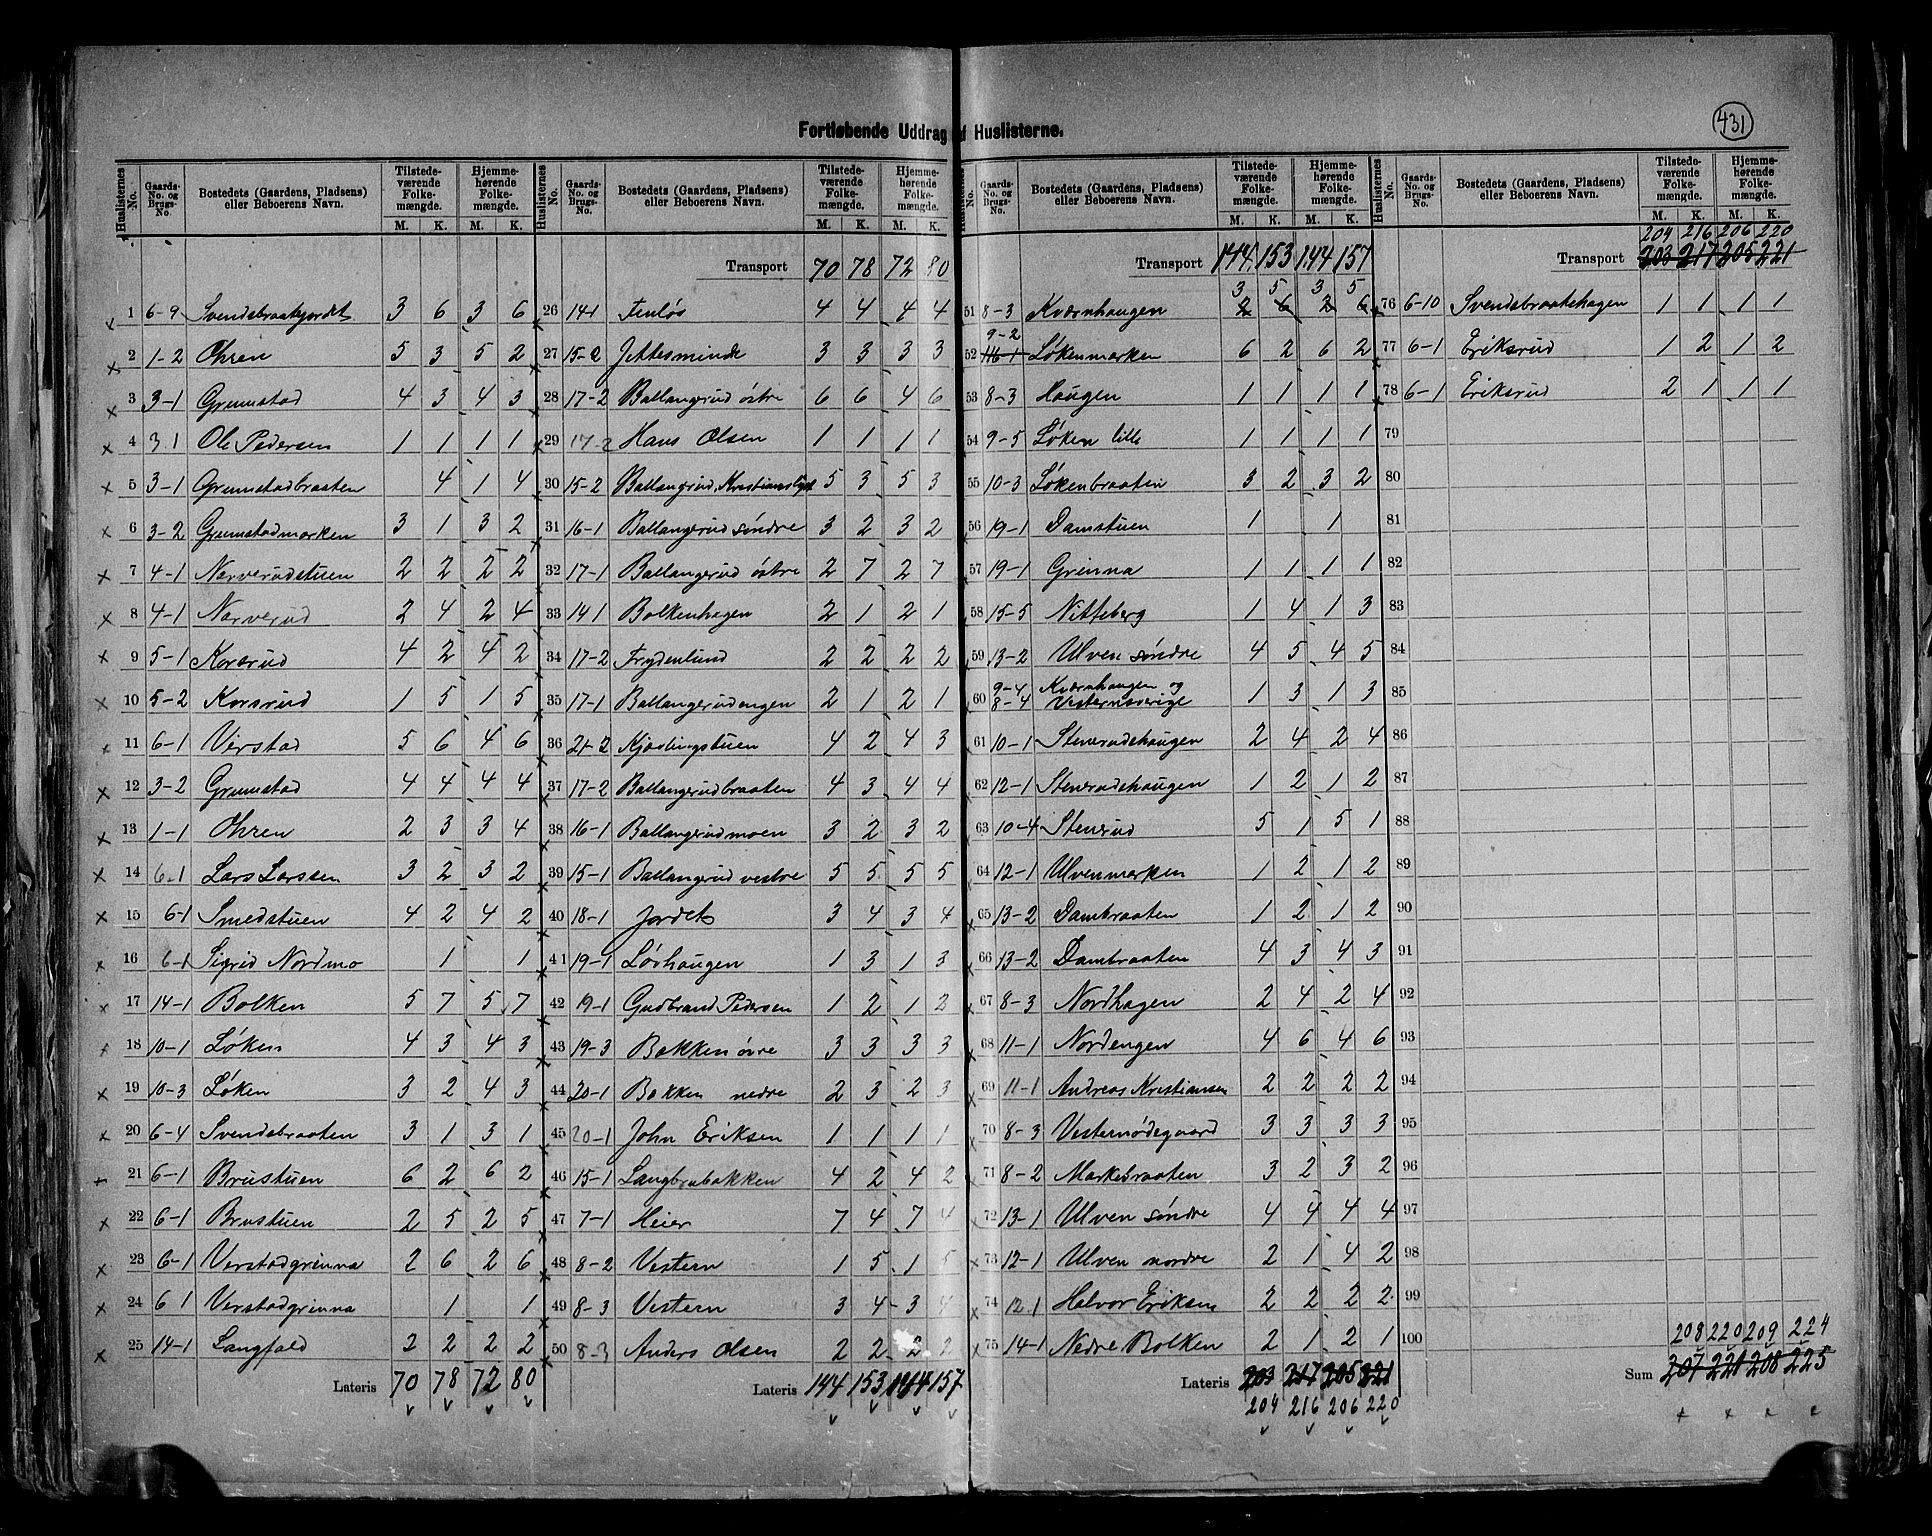 431
Fortløbende Uddrag af Huslisterne.
Huslisternes No. Gaards-No. og Brugs-No. Bostedets (Gaardens, Pladsens) eller Beboerens Navn. Tilstedeværende Folkemængde. M. K. Hjemmehørende Folkemængde. M. K.
1 6-9 Svendsbraatejordet 3 6 3 6
2 1-2 Ohren 5 3 5 2
3 3-1 Grumstad 4 3 4 3
4 3 1 Ole Pedersen 1 1 1 1
5 3-1 Grumstadbraaten 4 1 4
6 3-2 Grumstadmarken 3 1 3 2
7 4-1 Narverudstuen 2 2 2 2
8 4-1 Narverud 2 4 2 4
9 5-1 Korsrud 4 2 4 2
10 5-2 Korsrud 1 5 1 5
11 6-1 Verstad 5 6 4 6
12 3-2 Grumstad 4 4 4 4
13 1-1 Ohren 2 3 3 4
14 6-1 Lars Larssen 3 2 3 2
15 6-1 Smedstuen 4 2 4 2
16 6-1 Sigrid Nordmo 1 1
17 14-1 Bolken 5 7 5 7
18 10-1 Løken 4 3 4 3
19 10-3 Løken 3 2 4 3
20 6-4 Svendsbraaten 3 1 3 1
21 6-1 Brustuen 6 2 6 2
22 6-1 Brustuen 2 5 2 5
23 6-1 Verstadgrinna 2 6 2 6
24 6 1 Verstadgrinna 1 1
25 14-1 Langfald 2 2 2 2
Lateris 70 78 72 80
Huslisternes No. Gaards-No. og Brugs-No. Bostedets (Gaardens, Pladsens) eller Beboerens Navn. Tilstedeværende Folkemængde. M. K. Hjemmehørende Folkemængde. M. K.
Transport 70 78 72 80
26 14-1 Finløs 4 4 4 4
27 15-2 Jettesminde 3 3 3 3
28 17-2 Ballangerud østre 6 6 4 6
29 17-2 Hans Olsen 1 1 1 1
30 15-2 Ballangrud, Kristianslyst 5 3 5 3
31 16-1 Ballangerud søndre 3 2 3 2
32 17-1 Ballangerud østre 2 7 2 7
33 14 1 Bolkenhagen 2 1 2 1
34 17-2 Frydenlund 2 2 2 2
35 17-1 Ballangerudengen 2 1 2 1
36 21-2 Kjærlingstuen 4 2 4 3
37 17-2 Ballangerudbraaten 4 3 4 4
38 16-1 Ballangerudmoen 3 2 3 2
39 15-1 Ballangrud vestre 5 5 5 5
40 18-1 Jordet 3 4 3 4
41 19-1 Løvhaugen 1 3 1 3
42 19-1 Gudbrand Pedersen 1 2 1 2
43 19-3 Bakken øvre 3 3 3 3
44 20-1 Bakken nedre 2 3 2 3
45 20-1 John Eriksen 1 1 1 1
46 15-1 Langbrubakken 4 2 4 2
47 7-1 Heier 7 4 7 4
48 8-2 Vestern 1 5 1 5
49 8-3 Vestern 3 4 3 4
50 8-3 Anders Olsen 2 2 2 2
Lateris 144 153 144 157
Huslisternes No. Gaards-No. og Brugs-No. Bostedets (Gaardens, Pladsens) eller Beboerens Navn. Tilstedeværende Folkemængde. M. K. Hjemmehørende Folkemængde. M. K.
Transport 144 153 144 157
3 5 3 5
51 8-3 Kværnhaugen 2 6 2 6
9-2
52 116-1 Løkenmarken 6 2 6 2
53 8-3 Haugen 1 1 1 1
54 9-5 Løken lille 1 1 1 1
55 10-3 Løkenbraaten 3 2 3 2
56 19-1 Damstuen 1 1
57 19-1 Grinna 1 1 1 1
58 15-5 Nitteberg 1 4 1 3
59 13-2 Ulven søndre 4 5 4 5
60 9-4 8-4 Kværnhaugen og Vesternsverige 1 3 1 3
61 10-1 Stenrudshaugen 2 4 2 4
62 12-1 Stenrudshaugen 1 2 1 2
63 10-4 Stenrud 5 1 5 1
64 12-1 Ulvenmarken 1 2 1 2
65 13-2 Dambraaten 1 2 1 2
66 13-2 Dambraaten 4 3 4 3
67 8-3 Nordhagen 2 4 2 4
68 11-1 Nordengen 4 6 4 6
69 11-1 Andreas Kristiansen 2 2 2 2
70 8-3 Vesternødegaard 3 3 3 3
71 8-2 Markebraaten 3 2 3 2
72 13-1 Ulven søndre 4 4 4 4
73 12-1 Ulven nordre 2 1 4 2
74 12-1 Halvor Eriksen 2 2 2 2
75 14-1 Nedre Bolken 2 1 2 1
Lateris 203 217 205 221
204 216 206 220
Huslisternes No. Gaards-No. og Brugs-No. Bostedets (Gaardens, Pladsens) eller Beboerens Navn. Tilstedeværende Folkemængde. M. K. Hjemmehørende Folkemængde. M. K.
204 216 206 220
Transport 203 217 205 221
76 6-10 Svendsbraatehagen 1 1 1 1
77 6-1 Eriksrud 1 2 1 2
78 6-1 Eriksrud 2 1 1 1
79
80
81
82
83
84
85
86
87
88
89
90
91
92
93
94
95
96
97
98
99
100
208 220 209 224
Sum 207 221 208 225